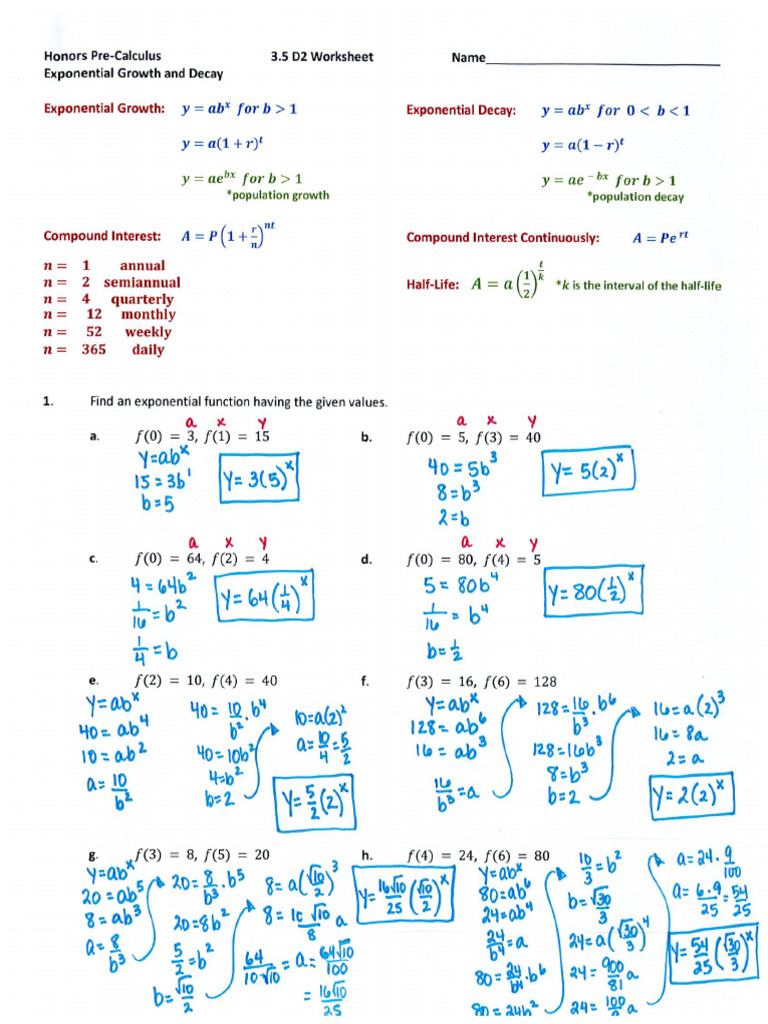 Honors Pre-Calculus 3.5 D2 Worksheet Name
Exponential Growth and Decay
Exponential Growth: y = abˣ for b > 1
y = a(1 + r)ᵗ
y = aeᵇˣ for b > 1
*population growth
Exponential Decay: y = abˣ for 0 < b < 1
y = a(1 − r)ᵗ
y = ae⁻ᵇˣ for b > 1
*population decay
Compound Interest: A = P(1 + r/n)ⁿᵗ
n = 1 annual
n = 2 semiannual
n = 4 quarterly
n = 12 monthly
n = 52 weekly
n = 365 daily
Compound Interest Continuously: A = Peʳᵗ
Half-Life: A = a(1/2)^(t/k) *k is the interval of the half-life
1. Find an exponential function having the given values.
a x y
a. f(0) = 3, f(1) = 15
y=abˣ
15=3b¹
b=5
y=3(5)ˣ
a x y
b. f(0) = 5, f(3) = 40
40=5b³
8=b³
2=b
y=5(2)ˣ
a x y
c. f(0) = 64, f(2) = 4
4=64b²
1/16=b²
1/4=b
y=64(1/4)ˣ
a x y
d. f(0) = 80, f(4) = 5
5=80b⁴
1/16=b⁴
b=1/2
y=80(1/2)ˣ
e. f(2) = 10, f(4) = 40
y=abˣ
40=ab⁴
10=ab²
a=10/b²
40=10/b²·b⁴
40=10b²
4=b²
b=2
10=a(2)²
a=10/4=5/2
y=5/2(2)ˣ
f. f(3) = 16, f(6) = 128
y=abˣ
128=ab⁶
16=ab³
16/b³=a
128=16/b³·b⁶
128=16b³
8=b³
b=2
16=a(2)³
16=8a
2=a
y=2(2)ˣ
g. f(3) = 8, f(5) = 20
y=abˣ
20=ab⁵
8=ab³
a=8/b³
20=8/b³·b⁵
20=8b²
5/2=b²
b=√10/2
8=a(√10/2)³
8=10√10/8 a
64/10√10=a=64√10/100
=16√10/25
y=16√10/25(√10/2)ˣ
h. f(4) = 24, f(6) = 80
y=abˣ
80=ab⁶
24=ab⁴
24/b⁴=a
80=24/b⁴·b⁶
80=24b²
10/3=b²
b=√30/3
24=a(√30/3)⁴
24=900/81 a
24=100/9 a
a=24·9/100
a=6·9/25=54/25
y=54/25(√30/3)ˣ